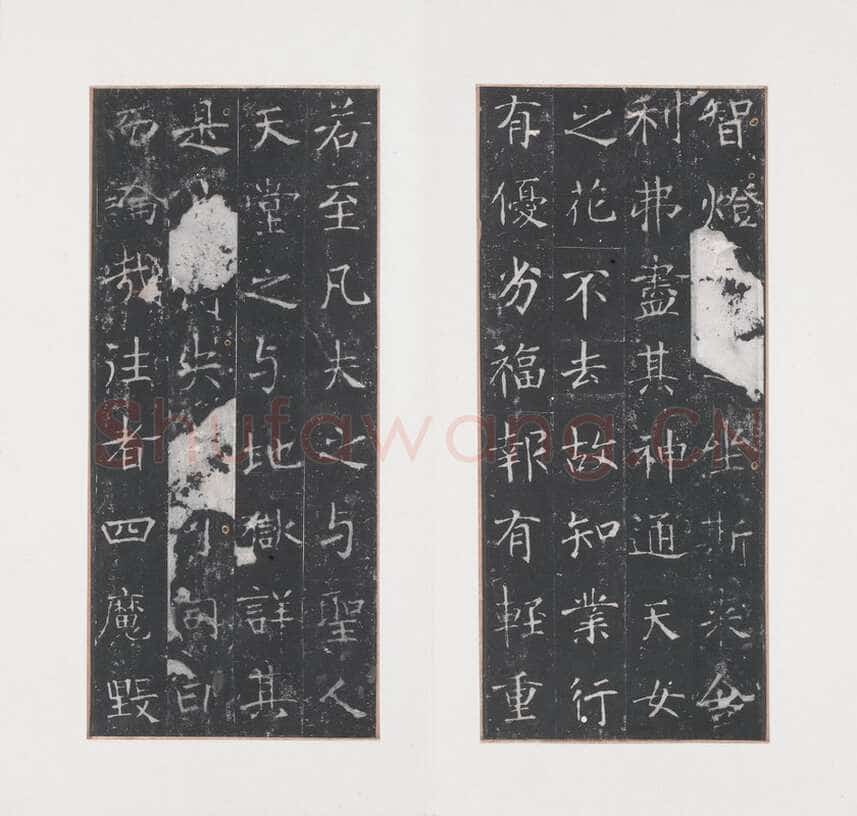 智燈一坐斯來舍
利弗盡其神通天女
之花不去故知業行
有優劣福報有輕重
若至凡夫之与聖人
天堂之与地獄詳其
是非得失不可同日
而論哉往者四魔毀
Shufawang.CN